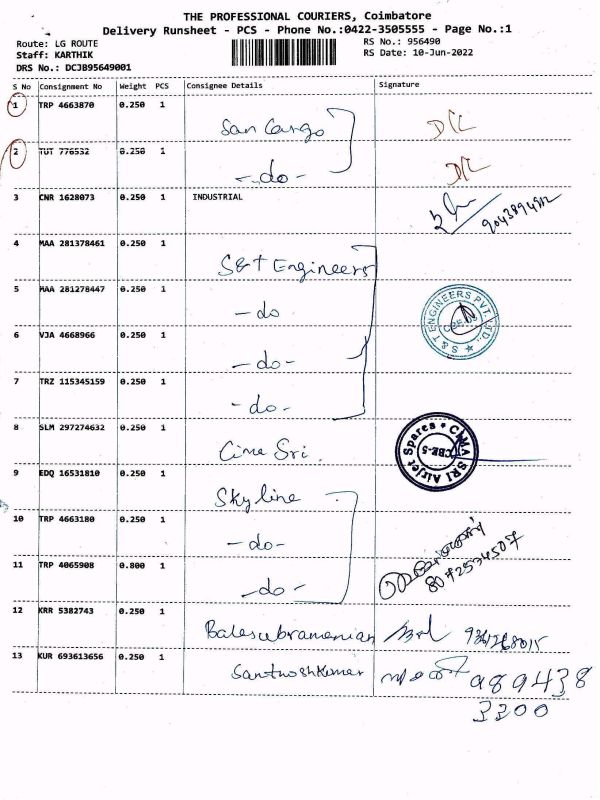 THE PROFESSIONAL COURIERS, Coimbatore
Delivery Runsheet - PCS - Phone No.:0422-3505555 - Page No.:1
Route: LG ROUTE RS No.: 956490
Staff: KARTHIK RS Date: 10-Jun-2022
DRS No.: DCJB95649001
S No Consignment No Weight PCS Consignee Details Signature
1 TRP 4663870 0.250 1 San Cargo D/L
2 TUT 776532 0.250 1 -do- D/L
3 CNR 1628073 0.250 1 INDUSTRIAL
4 MAA 281378461 0.250 1 S&T Engineers
5 MAA 281278447 0.250 1 -do
S & T ENGINEERS PVT. LTD.,
6 VJA 4668966 0.250 1 -do-
7 TRZ 115345159 0.250 1 -do-
8 SLM 297274632 0.250 1 Cima Sri.
CIMA SRI Airjet Spares CBE-5
9 EDQ 16531810 0.250 1 Skyline
10 TRP 4663180 0.250 1 -do-
11 TRP 4065908 0.800 1 -do- 8072534507
12 KRR 5382743 0.250 1 Balasubramanian
13 KUR 693613656 0.250 1 Santhoshkumar 989438
3200